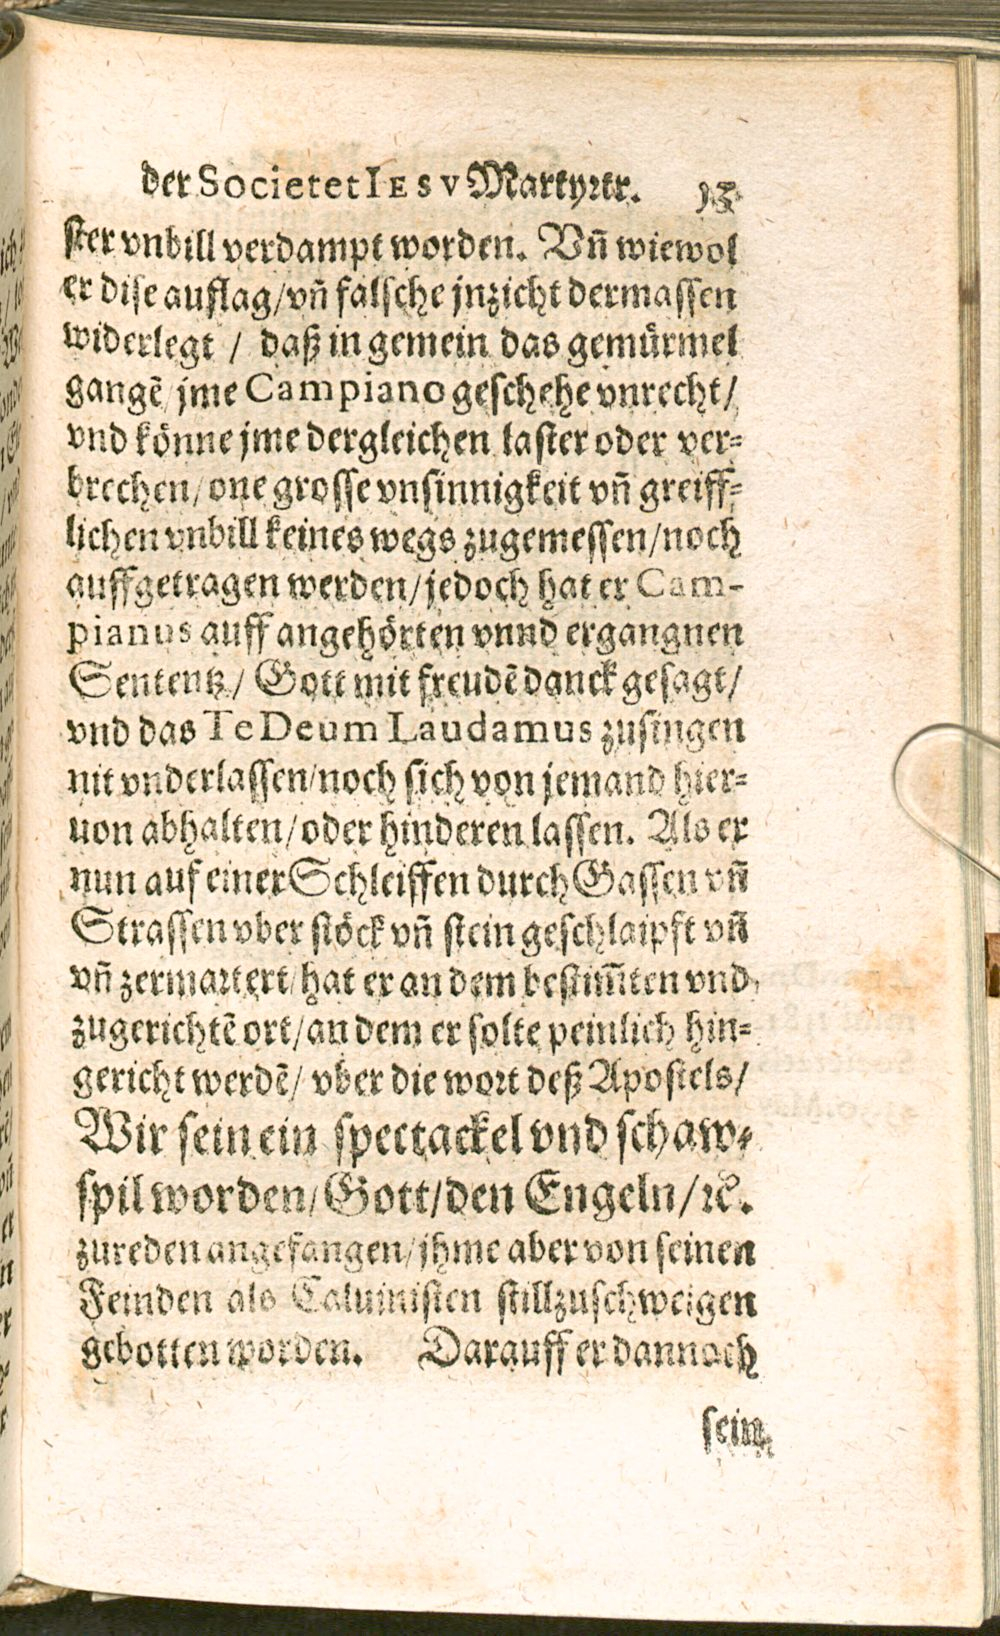 der Societet IESV Martyrer. 13
ster vnbill verdampt worden. Vñ wiewol
er dise auflag/vñ falsche jnzicht dermassen
widerlegt / daß in gemein das gemürmel
gangẽ jme Campiano geschehe vnrecht/
vnd könne jme dergleichen laster oder ver-
brechen/one grosse vnsinnigkeit vñ greiff-
lichen vnbill keines wegs zugemessen/noch
auffgetragen werden/jedoch hat er Cam-
pianus auff angehörten vnnd ergangnen
Sententz/ Gott mit freudẽ danck gesagt/
vnd das Te Deum Laudamus zusingen
nit vnderlassen/noch sich von jemand hier-
uon abhalten/oder hinderen lassen. Als er
nun auf einer Schleiffen durch Gassen vñ
Strassen vber stöck vñ stein geschlaipft vñ
vñ zermartert/hat er an dem bestim̃ten vnd
zugerichtẽ ort/an dem er solte peinlich hin-
gericht werdẽ/ vber die wort deß Apostels/
Wir sein ein spectackel vnd schaw-
spil worden/Gott/den Engeln/ꝛc.
zureden angefangen/jhme aber von seinen
Feinden als Caluinisten stillzuschweigen
gebotten worden. Darauff er dannoch
sein